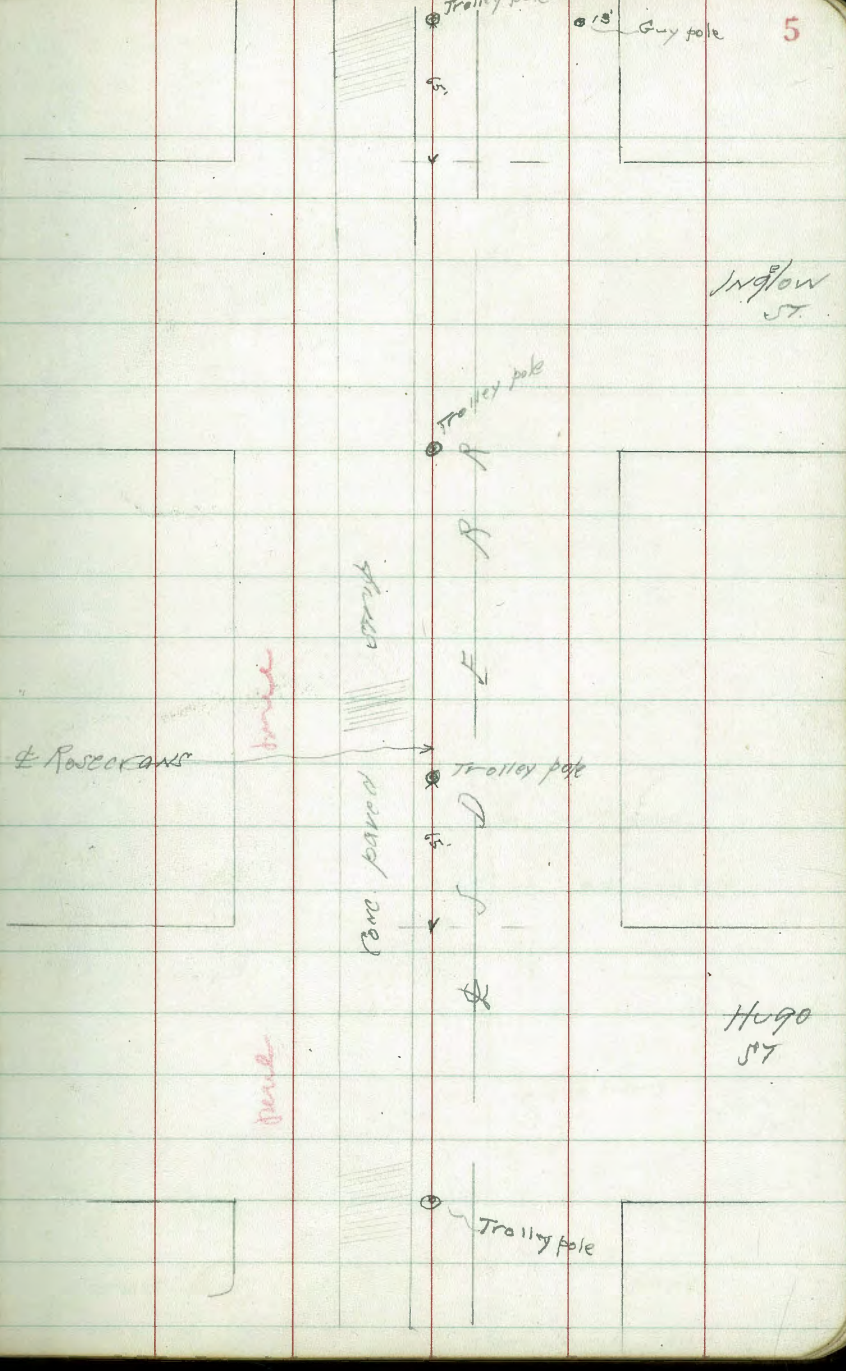 Trolley pole
13'
Guy pole
5
15'
Inglow
e
ST.
Trolley pole
strip
℄ Rosecrans
Trolley pole
Conc paved
15'
℄ S D E R R
Hugo
ST
Trolley pole